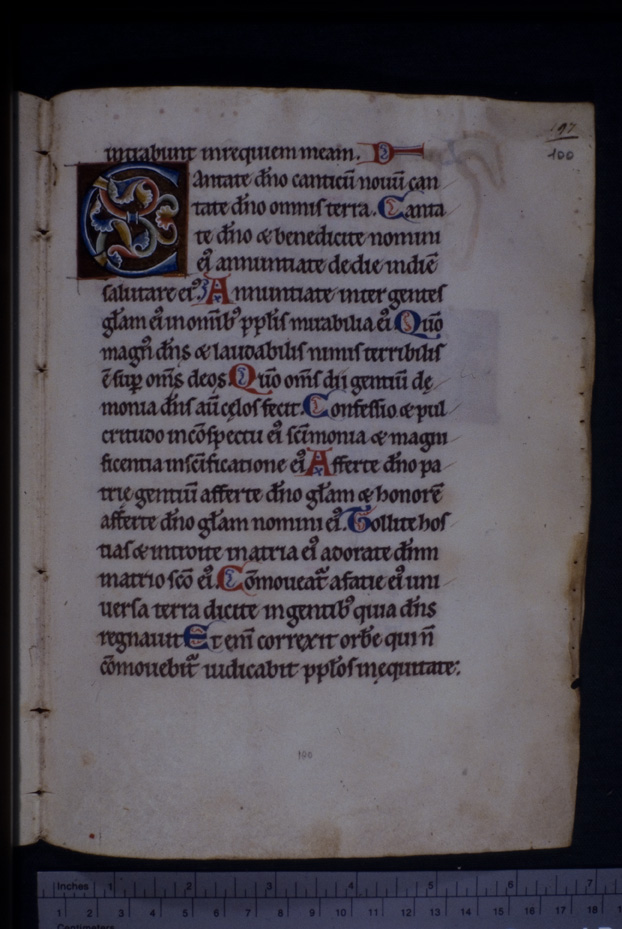 197
100
intrabunt inrequiem meam.
Cantate dño canticū nouū can
tate dño omnis terra. Canta
te dño & benedicite nomini
ei᾽ annuntiate dedie indiē
salutare ei᾽. Annuntiate inter gentes
gl̄am ei᾽ inomīb᾽ pp̄lis mirabilia ei᾽ Qūo
magn᾽ dn̄s & laudabilis nimis terribilis
ē sup om̄s deos. Qūo om̄s dii gentiū dę
monia dn̄s aūt cęlos fecit. Confessio & pul
critudo incōspectu ei᾽ sc̄imonia & magni
ficentia insc̄ificatione ei᾽ Afferte dño pa
trie gentiū afferte dño gl̄am & honorē
afferte dño gl̄am nomini ei᾽. Tollite hos
tias & introite inatria ei᾽ adorate dn̄m
inatrio sc̄o ei᾽. Cōmoueat᾽ afatie ei᾽ uni
uersa terra dicite ingentib᾽ quia dn̄s
regnauit Et eni᾽ correxit orbē qui n̄
cōmouebit᾽ iudicabit pp̄los inęquitate:
100
Inches 1 2 3 4 5 6 7
1 2 3 4 5 6 7 8 9 10 11 12 13 14 15 16 17 18
Centimeters